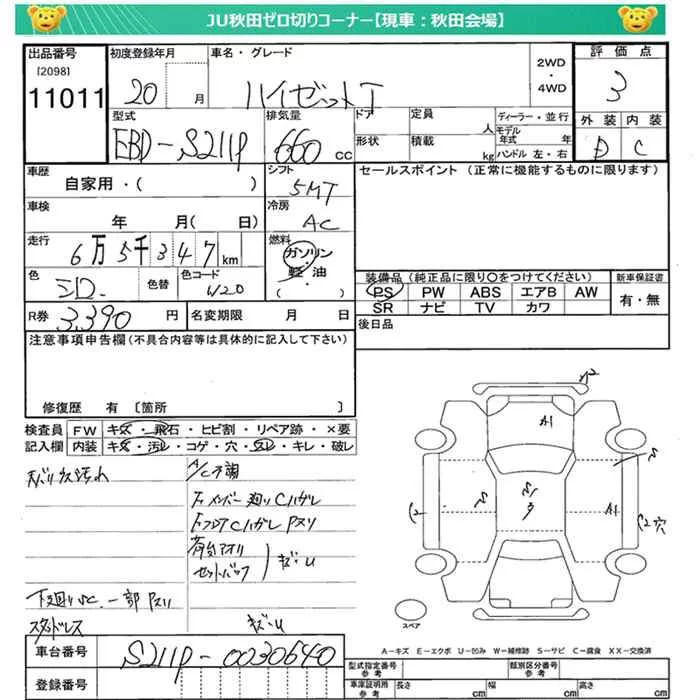 JU秋田ゼロ切りコーナー【現車：秋田会場】
出品番号
[2098]
11011
初度登録年月
20 月
車名・グレード
ハイゼットT
2WD
・
4WD
評価点
3
外装 内装
D C
型式
EBD-S211P
排気量
660 cc
ドア
形状
定員
人
積載
kg
ディーラー・並行
モデル年式 年
ハンドル 左・右
車歴
自家用・( )
シフト
5MT
セールスポイント (正常に機能するものに限ります)
車検
年 月( 日)
冷房
AC
走行
6万5千347km
燃料
ガソリン
・
軽油
( )
色
シロ.
色替
色コード
W20
装備品 (純正品に限り○をつけてください)
新車保証書
PS PW ABS エアB AW
有・無
SR ナビ TV カワ
R券 3,390 円
名変期限 月 日
後日品
注意事項申告欄(不具合内容等は具体的に記入して下さい)
修復歴 有 [箇所 ]
検査員
記入欄
FW キズ・飛石・ヒビ割・リペア跡・×要
内装 キズ・汚レ・コゲ・穴・スレ・キレ・破レ
A/C不調
Fメンバー廻りCハガレ
FフロアCハガレ Pヌリ
荷台アオリ
セットバック
キズ・U
下廻りSC.一部Pヌリ
スタッドレス
キズ・U
W2
A1
S
S
S
3
A1
C2
C2穴
スペア
A－キズ E－エクボ U－凹み W－補修跡 S－サビ C－腐食 XX－交換済
車台番号
S211P-0030640
登録番号
型式指定番号
参考
類別区分番号
参考
車庫証明用
参考
長さ cm
幅 cm
高さ cm